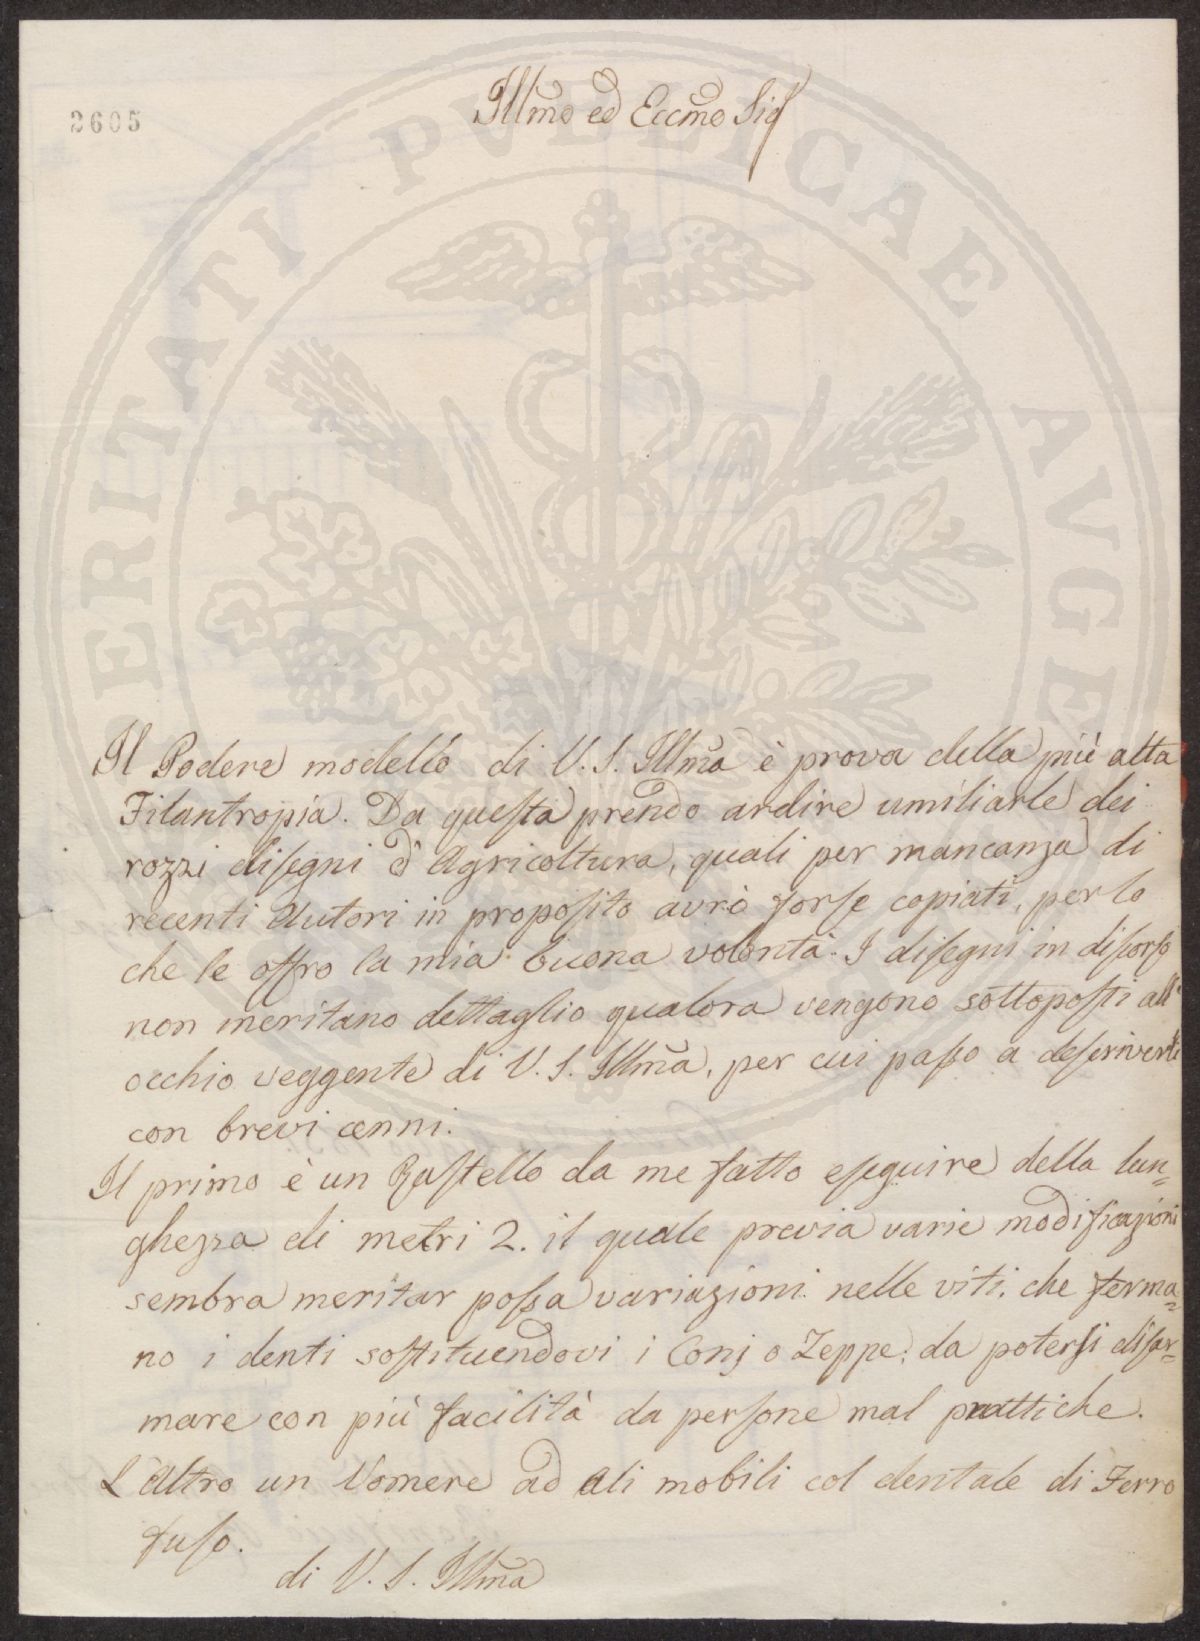 2605
Illmo ed Eccmo Sig
PROSPERITATI PVBLICAE AVGE
Il Podere modello di V. S. Illma è prova della più alta
Filantropia. Da questa prendo ardire umiliarle dei
rozzi disegni d'Agricoltura, quali per mancanza di
recenti Autori in proposito avrò forse copiati, per lo
che le offro la mia buona volontà. I disegni in discorso
non meritano dettaglio qualora vengono sottoposti all'
occhio veggente di V. S. Illma, per cui passo a descriverli
con brevi cenni.
Il primo è un Rastello da me fatto eseguire della lun=
ghezza di metri 2. il quale previa varie modificazioni
sembra meritar possa variazioni nelle viti, che ferma=
no i denti sostituendovi i Conj o Zeppe; da potersi disar=
mare con più facilità da persone mal prattiche.
L'Altro un Vomere ad Ali mobili col dentale di Ferro
fuso.
di V. S. Illma